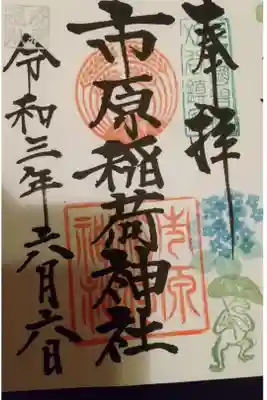 奉拝
市原稲荷神社
令和三年六月六日